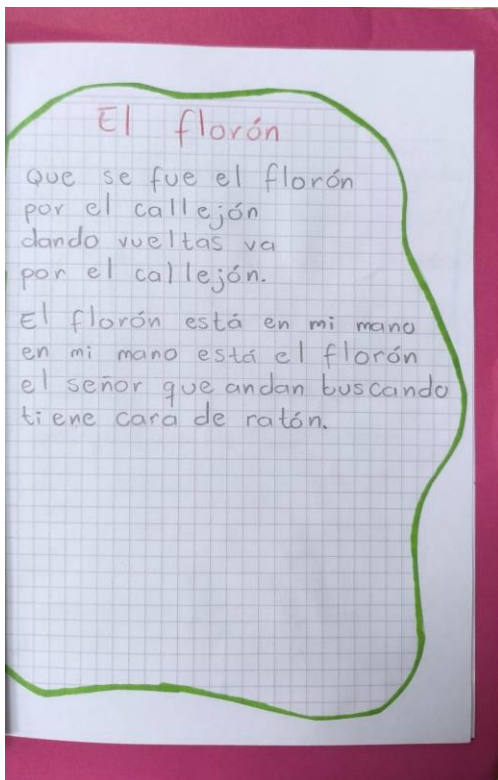 El florón
Que se fue el florón
por el callejón
dando vueltas va
por el callejón.
El florón está en mi mano
en mi mano está el florón
el señor que andan buscando
tiene cara de ratón.